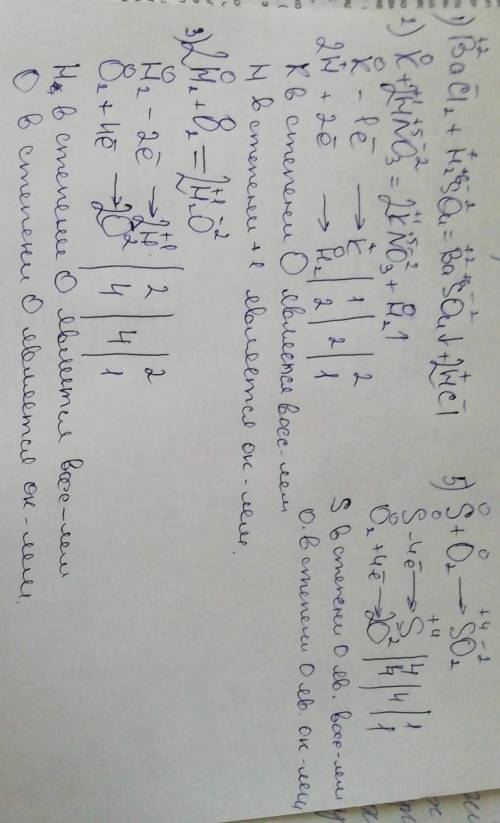 1) Ba⁺²Cl₂⁻ + H₂⁺S⁺⁶O₄⁻² = Ba⁺²S⁺⁶O₄⁻²↓ + 2H⁺Cl⁻
2) K⁰ + 2H⁺¹N⁺⁵O₃⁻² = 2K⁺¹N⁺⁵O₃⁻² + H₂⁰↑
K⁰ - 1ē → K⁺ | 1 | 2 | 2
2H⁺ + 2ē → H₂⁰ | 2 | 2 | 1
K в степени 0 является восс-лем
H в степени +1 является ок-лем.
3) 2H₂⁰ + O₂⁰ = 2H₂⁺¹O⁻²
H₂⁰ - 2ē → 2H⁺¹ | 2 | 4 | 2
O₂⁰ + 4ē → 2O⁻² | 4 | 4 | 1
H₂ в степени 0 является восс-лем
O в степени 0 является ок-лем.
5) S⁰ + O₂⁰ → S⁺⁴O₂⁻²
S⁰ - 4ē → S⁺⁴ | 4 | 4 | 1
O₂⁰ + 4ē → 2O⁻² | 4 | 4 | 1
S в степени 0 яв. восс-лем
O в степени 0 яв. ок-лем